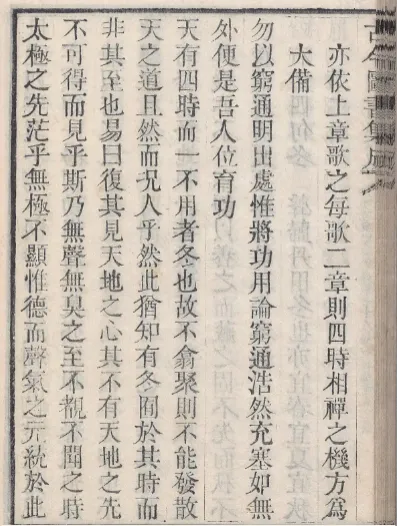 古今圖書集成
亦依上章歌之每歌二章則四時相禪之機方爲
大備
勿以窮通明出處惟將功用論窮通浩然充塞如無
外便是吾人位育功
天有四時而一不用者冬也故不翕聚則不能發散
天之道且然而況人乎然此猶知有冬囿於其時而
非其至也易曰復其見天地之心其不有天地之先
不可得而見乎斯乃無聲無臭之至不覩不聞之時
太極之先茫乎無極不顯惟德而聲氣之元統於此